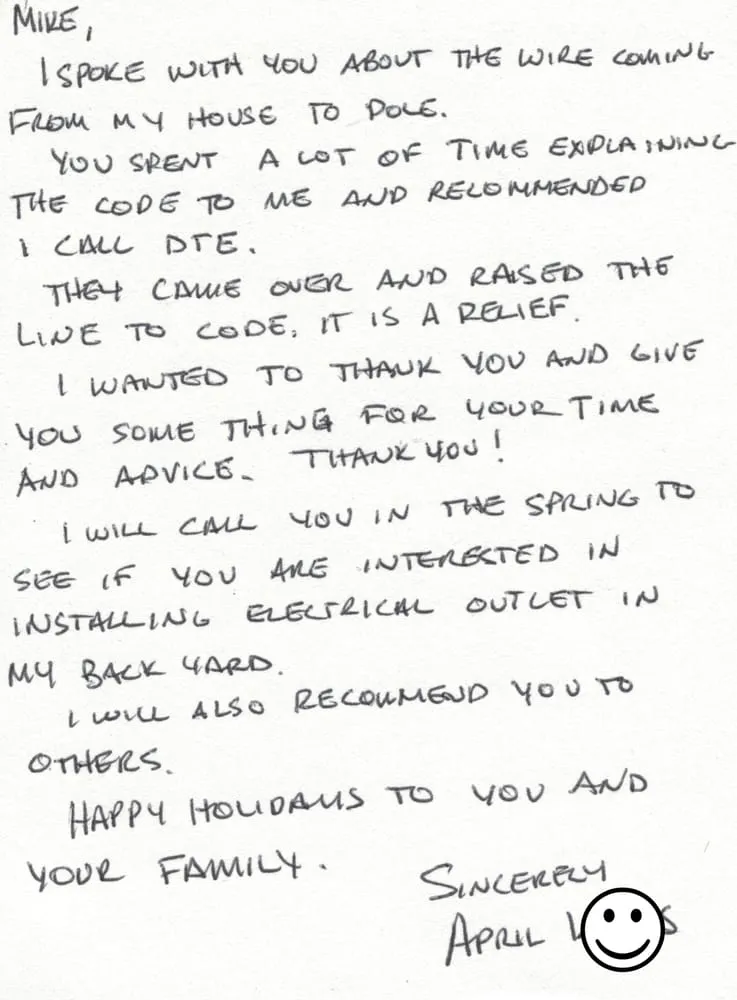 MIKE,
I SPOKE WITH YOU ABOUT THE WIRE COMING
FROM MY HOUSE TO POLE.
YOU SPENT A LOT OF TIME EXPLAINING
THE CODE TO ME AND RECOMMENDED
I CALL DTE.
THEY CAME OVER AND RAISED THE
LINE TO CODE. IT IS A RELIEF.
I WANTED TO THANK YOU AND GIVE
YOU SOME THING FOR YOUR TIME
AND ADVICE. THANK YOU!
I WILL CALL YOU IN THE SPRING TO
SEE IF YOU ARE INTERESTED IN
INSTALLING ELECTRICAL OUTLET IN
MY BACK YARD.
I WILL ALSO RECOMMEND YOU TO
OTHERS.
HAPPY HOLIDAYS TO YOU AND
YOUR FAMILY.
SINCERELY
APRIL